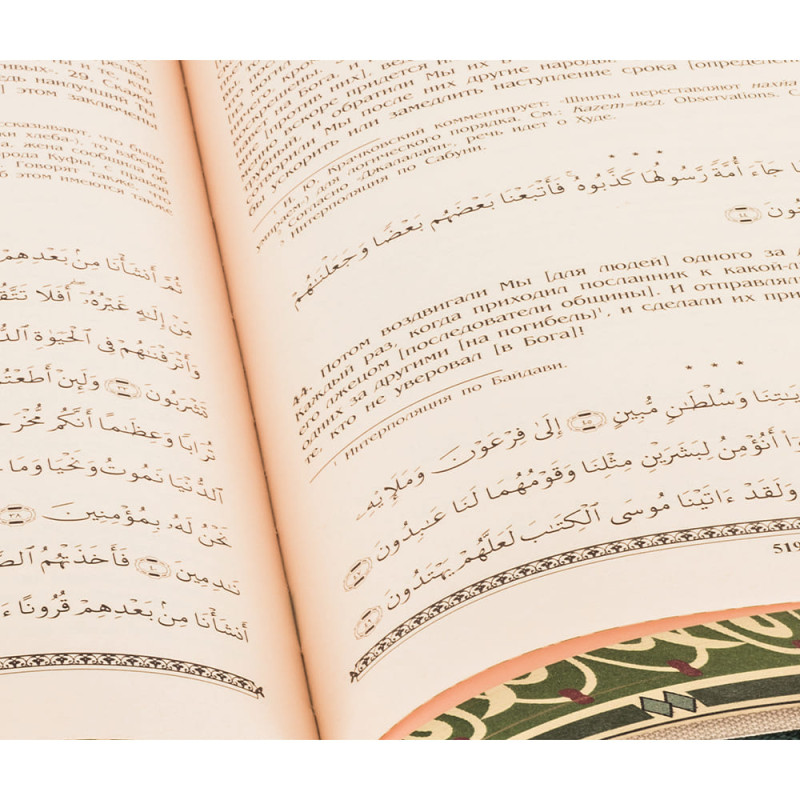 ты и те, кто
решен
ливых». 29. Скажи
ведь наилучший Ты
] этом заключены
ссказывают, что было
ки хлеба»), то взбери
, жена сообщила
рода Куфы, с правой
Говорят также, что
б этом имеются также
ثُمَّ أَنشَأْنَا مِنۢ بَعْدِهِمْ
مِّنْ إِلَٰهٍ غَيْرُهُۥٓ ۖ أَفَلَا تَتَّقُ
وَأَتْرَفْنَٰهُمْ فِى ٱلْحَيَوٰةِ ٱلدُّ
تَشْرَبُونَ ٣٣ وَلَئِنْ أَطَعْتُ
تُرَابًا وَعِظَٰمًا أَنَّكُم مُّخْرَجُ
ٱلدُّنْيَا نَمُوتُ وَنَحْيَا وَمَا
نَحْنُ لَهُۥ بِمُؤْمِنِينَ ٣٨
نَٰدِمِينَ ٤٠ فَأَخَذَتْهُمُ ٱلصَّ
أَنشَأْنَا مِنۢ بَعْدِهِمْ قُرُونًا ءَ
[против них], вел
вскоре обратили Мы их в
и Мы после них другие народы.
ускорить или замедлить наступление срока [определен
¹ И. Ю. Крачковский комментирует: «Шииты переставляют нахйа
умираем») для логического порядка. См.: Kazem-век. Observations. С.
² Согласно «Джалалайн», речь идет о Худе.
³ Интерполяция по Сабуни.
جَآءَ أُمَّةً رَّسُولُهَا كَذَّبُوهُ ۚ فَأَتْبَعْنَا بَعْضَهُم بَعْضًا وَجَعَلْنَٰهُمْ
٤٤
44. Потом воздвигали Мы [для людей] одного за
каждый раз, когда приходил посланник к какой-л
его лжецом [последователи общины]. И отправлял
одних за другими [на погибель]¹, и сделали их при
те, кто не уверовал [в Бога]!
¹ Интерполяция по Байдави.
وَسُلْطَٰنٍ مُّبِينٍ ٤٥ إِلَىٰ فِرْعَوْنَ وَمَلَإِي۟هِ
أَنُؤْمِنُ لِبَشَرَيْنِ مِثْلِنَا وَقَوْمُهُمَا لَنَا عَٰبِدُونَ
وَلَقَدْ ءَاتَيْنَا مُوسَى ٱلْكِتَٰبَ لَعَلَّهُمْ يَهْتَدُونَ ٤٩
519